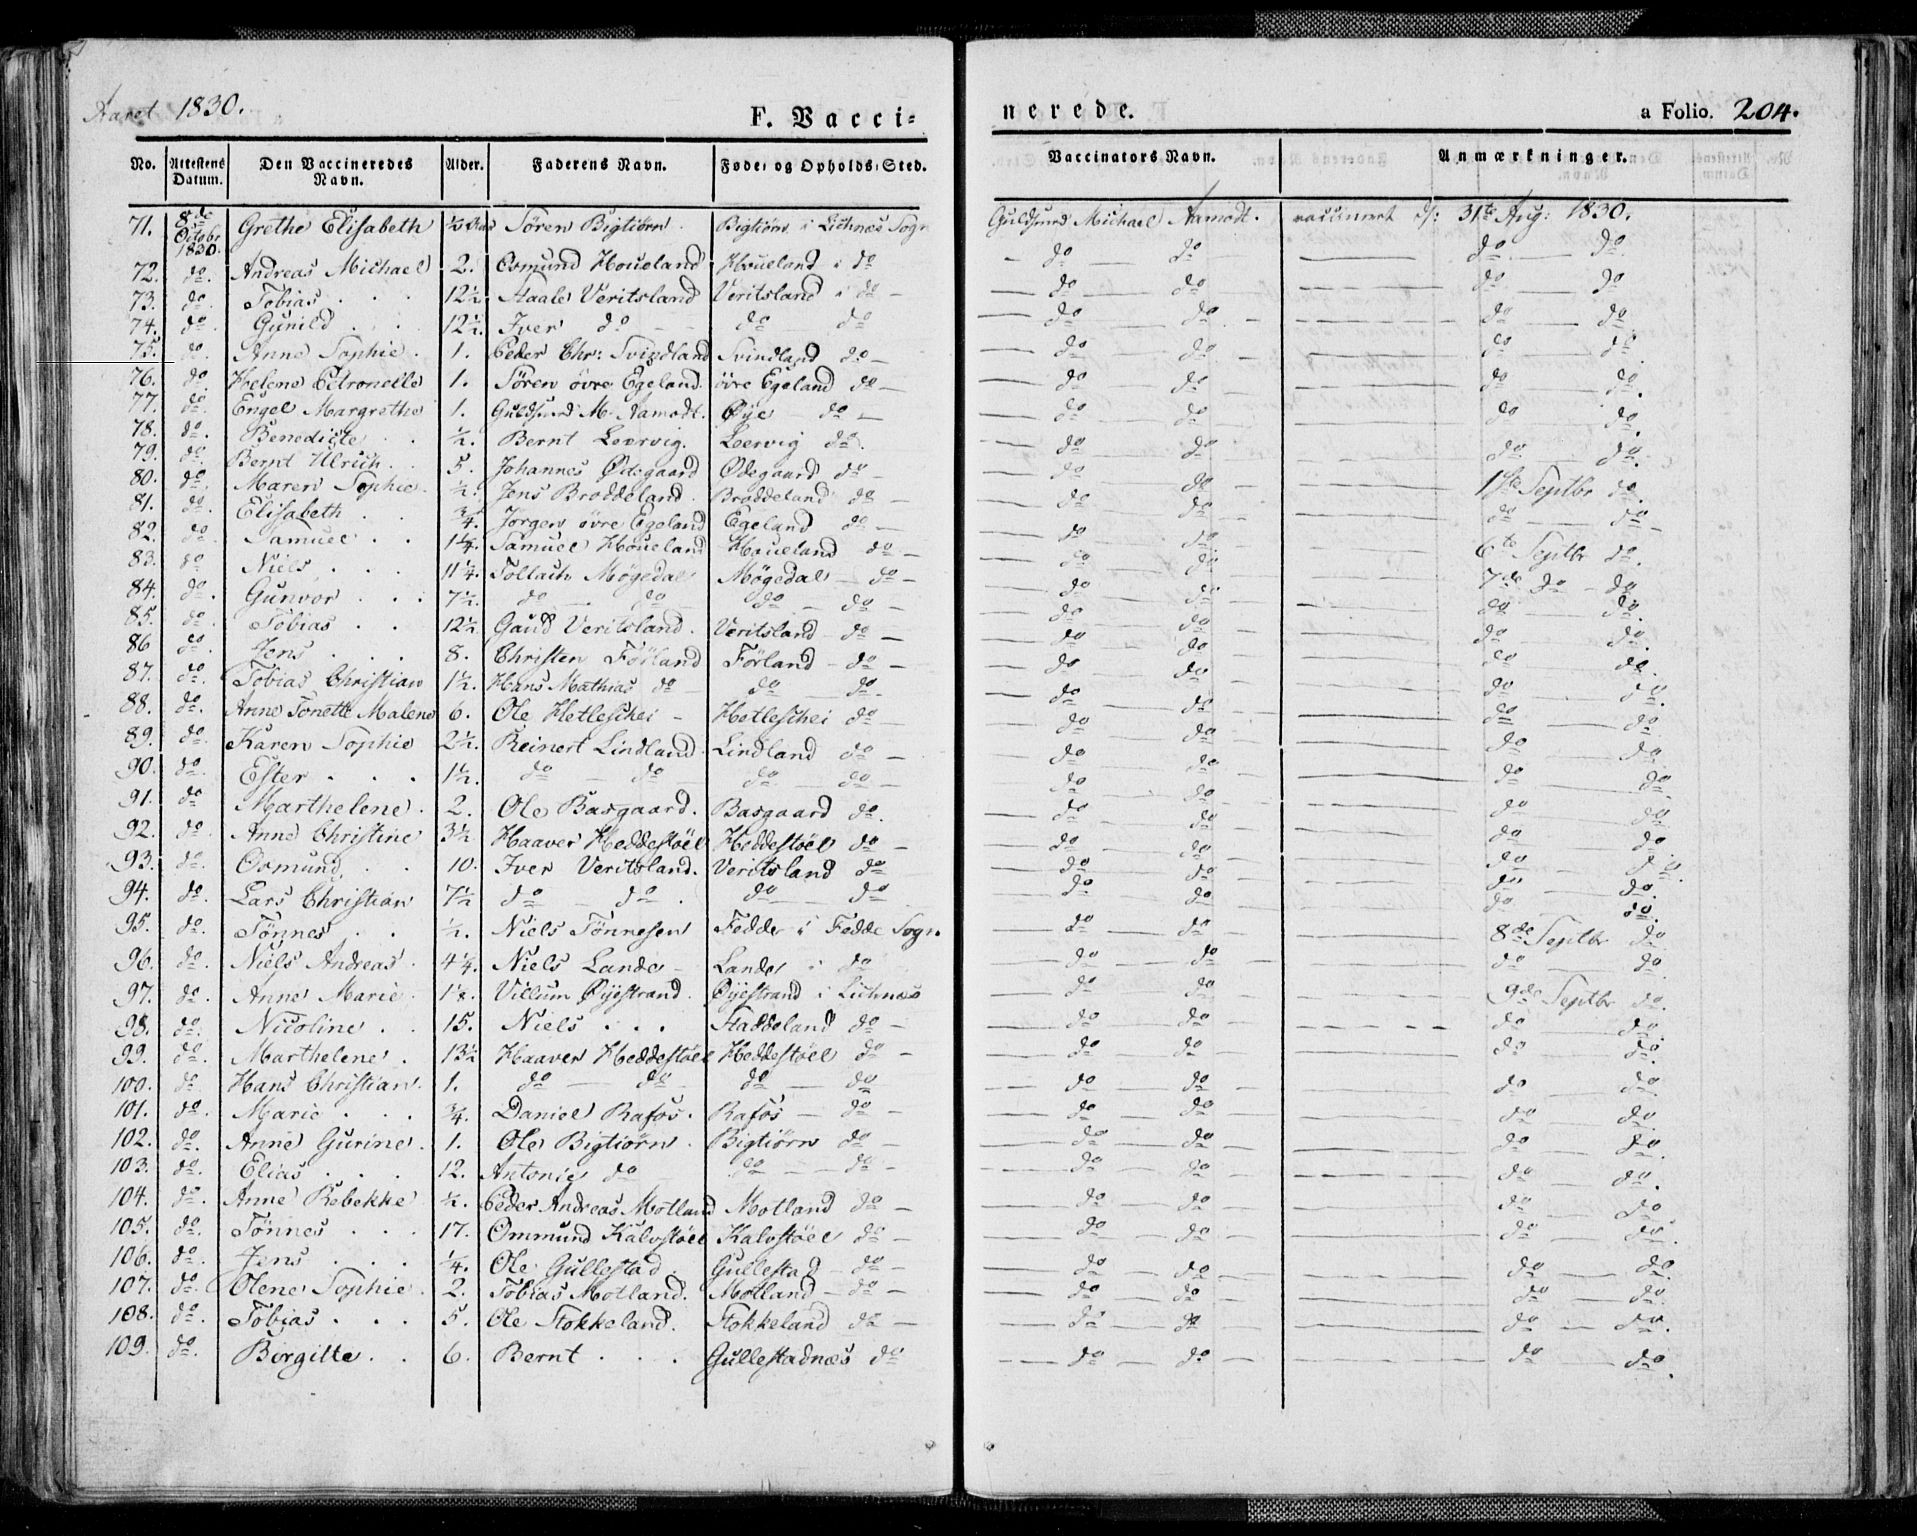 Aaret 1830.
F. Vacci=
nerede.
a Folio. 204.
No. Attestens Datum. Den Vaccineredes Navn. Alder. Faderens Navn. Føde- og Opholds-Sted. Vaccinators Navn. Anmærkninger.
71. 8de Octobr 1830. Grethe Elisabeth ½ Søren Bigtiørn. Bigtiørn i Lichnæs Sogn Michael Aamodt. vaccineret d: 31te Aug: 1830.
72. do. Andreas Michael 2. Osmund Houeland Houeland i do — do — do — do — do
73. do. Tobias . . . 12½ Staale Veritsland Veritsland i do — do — do — do — do
74. do. Gunild . . . 12½. Iver do — — do do — do — do — do — do.
75. do. Anne Sophie . 1. Peder Chr: Svindland Svindland do — do — do — do — do.
76. do. Helene Petronelle 1. Søren övre Egeland. övre Egeland do — do — do — do — do.
77. do. Engel Margrethe 1. M. Aamodt. Øye do — do — do — do — do.
78. do. Benedicte . . ½. Bernt Leervig. Leervig do. — do — do — do — do.
79. do. Bernt Ulrich . . 5. Johannes Ødegaard Ødegaard do — do — do — 1ste Septbr do.
80. do. Maren Sophie. ½. Jens Broddeland. Broddeland do — do — do — do — do —
81. do. Elisabeth . . ¾. Jørgen övre Egeland Egeland do — do — do — 6te Septbr do.
82. do. Samuel . . 1¼. Samuel Houeland Houeland do — do — do — 7de do — do
83. do Niels . . . 11¼. Tollach Møgedal Møgedal — do — do — do — do — do.
84. do. Gunvor . . . 7½. do — do do — do — do — do — do — do.
85. do. Tobias . . 12½ Gaud Veritsland. Veritsland — do — do — do — do — do.
86 do. Jens . . . 8. Christen Førland Førland — do — do — do — do — do.
87. do. Tobias Christian 1½. Hans Mathias do do — do. — do — do — do — do.
88. do. Anne Tonette Malene 6. Ole Hetleschei — Hetleschei do — do — do — do — do.
89. do. Karen Sophie 2½. Reinert Lindland. Lindland do — do — do — do — do.
90. do. Ester . . . 1½. do — do do — do — do — do — do — do.
91. do Marthelene . 2. Ole Basgaard. Basgaard do. — do — do — do — do.
92. do. Anne Christine 3½ Haaver Heddestøel Heddestøel do — do — do — do — do.
93. do. Osmund . . 10. Iver Veritsland. Veritsland do — do — do — do — do.
94. do. Lars Christian 7½ do — do . do do — do — do — do — do.
95. do. Tønnes . . ½. Niels Tønnesen Fedde i Fedde Sogn — do — do — 8de Septbr do
96. do. Niels Andreas . 4¼. Niels Lande — Lande i do — do — do — do — do.
97. do. Anne Marie . 1⅛. Villum Øijestrand. Øijestrand i Lichnæs — do — do — 9de Septbr do.
98. do. Nicoline . . 15. Niels . . . Staddeland do — do — do — do — do.
99. do. Marthelene . 13½ Haaver Heddestøel Heddestøel do — do do — do — do.
100. do Hans Christian. 1. do — do do — do — do — do — do — do.
101. do. Marie . . . ¾. Daniel Rafos. Rafos — do — do — do — do — do.
102. do. Anne Gurine. 1. Ole Bigtiørn. Bigtiørn do — do — do — do — do.
103. do. Elias . . . 12. Antonie do do — do — do — do — do — do.
104. do. Anne Rebekke ½. Peder Andreas Motland Motland do — do — do — do — do
105. do. Tønnes . . . 17. Ommund Kalvstøel Kalvstøel do — do — do — do — do.
106. do. Jens . . . ¼. Ole Gullestad. Gullestad — do — do — do — do — do.
107. do. Olene Sophie. 2. Tobias Motland. Motland — do — do — do — do — do.
108. do. Tobias . . . 5. Ole Stokkeland. Stokkeland do — do — do — do — do.
109. do. Birgitte . . 6. Bernt . . . Gullestadnæs do — do — do — do — do.